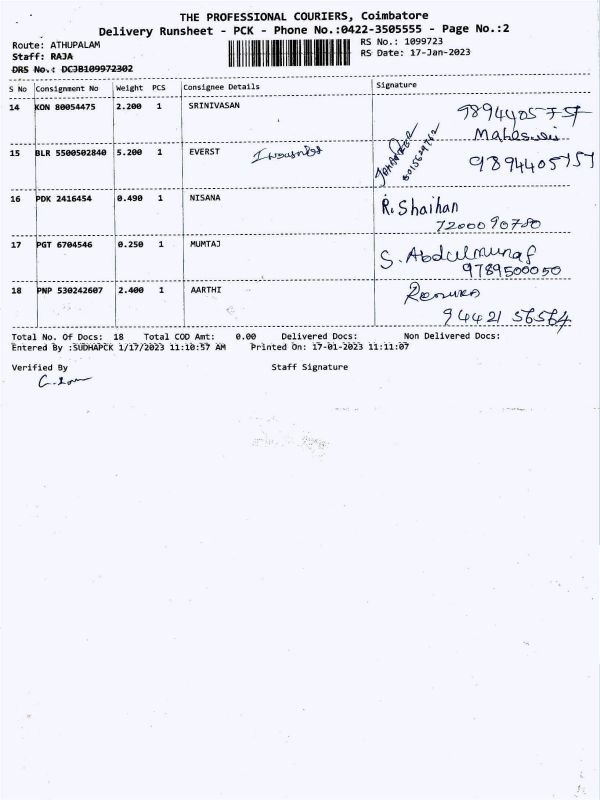 THE PROFESSIONAL COURIERS, Coimbatore
Delivery Runsheet - PCK - Phone No.:0422-3505555 - Page No.:2
Route: ATHUPALAM
RS No.: 1099723
Staff: RAJA
RS Date: 17-Jan-2023
DRS No.: DCJB109972302
S No Consignment No Weight PCS Consignee Details Signature
14 KON 80054475 2.200 1 SRINIVASAN
Maheswari
15 BLR 5500502840 5.200 1 EVERST
9894405757
16 PDK 2416454 0.490 1 NISANA R. Shaihan
7200090780
17 PGT 6704546 0.250 1 MUMTAJ S. Abdulmunaf
9789500050
18 PNP 530242607 2.400 1 AARTHI Renuka
94421 56564
Total No. Of Docs: 18 Total COD Amt: 0.00 Delivered Docs: Non Delivered Docs:
Entered By :SUDHAPCK 1/17/2023 11:10:57 AM Printed On: 17-01-2023 11:11:07
Verified By Staff Signature